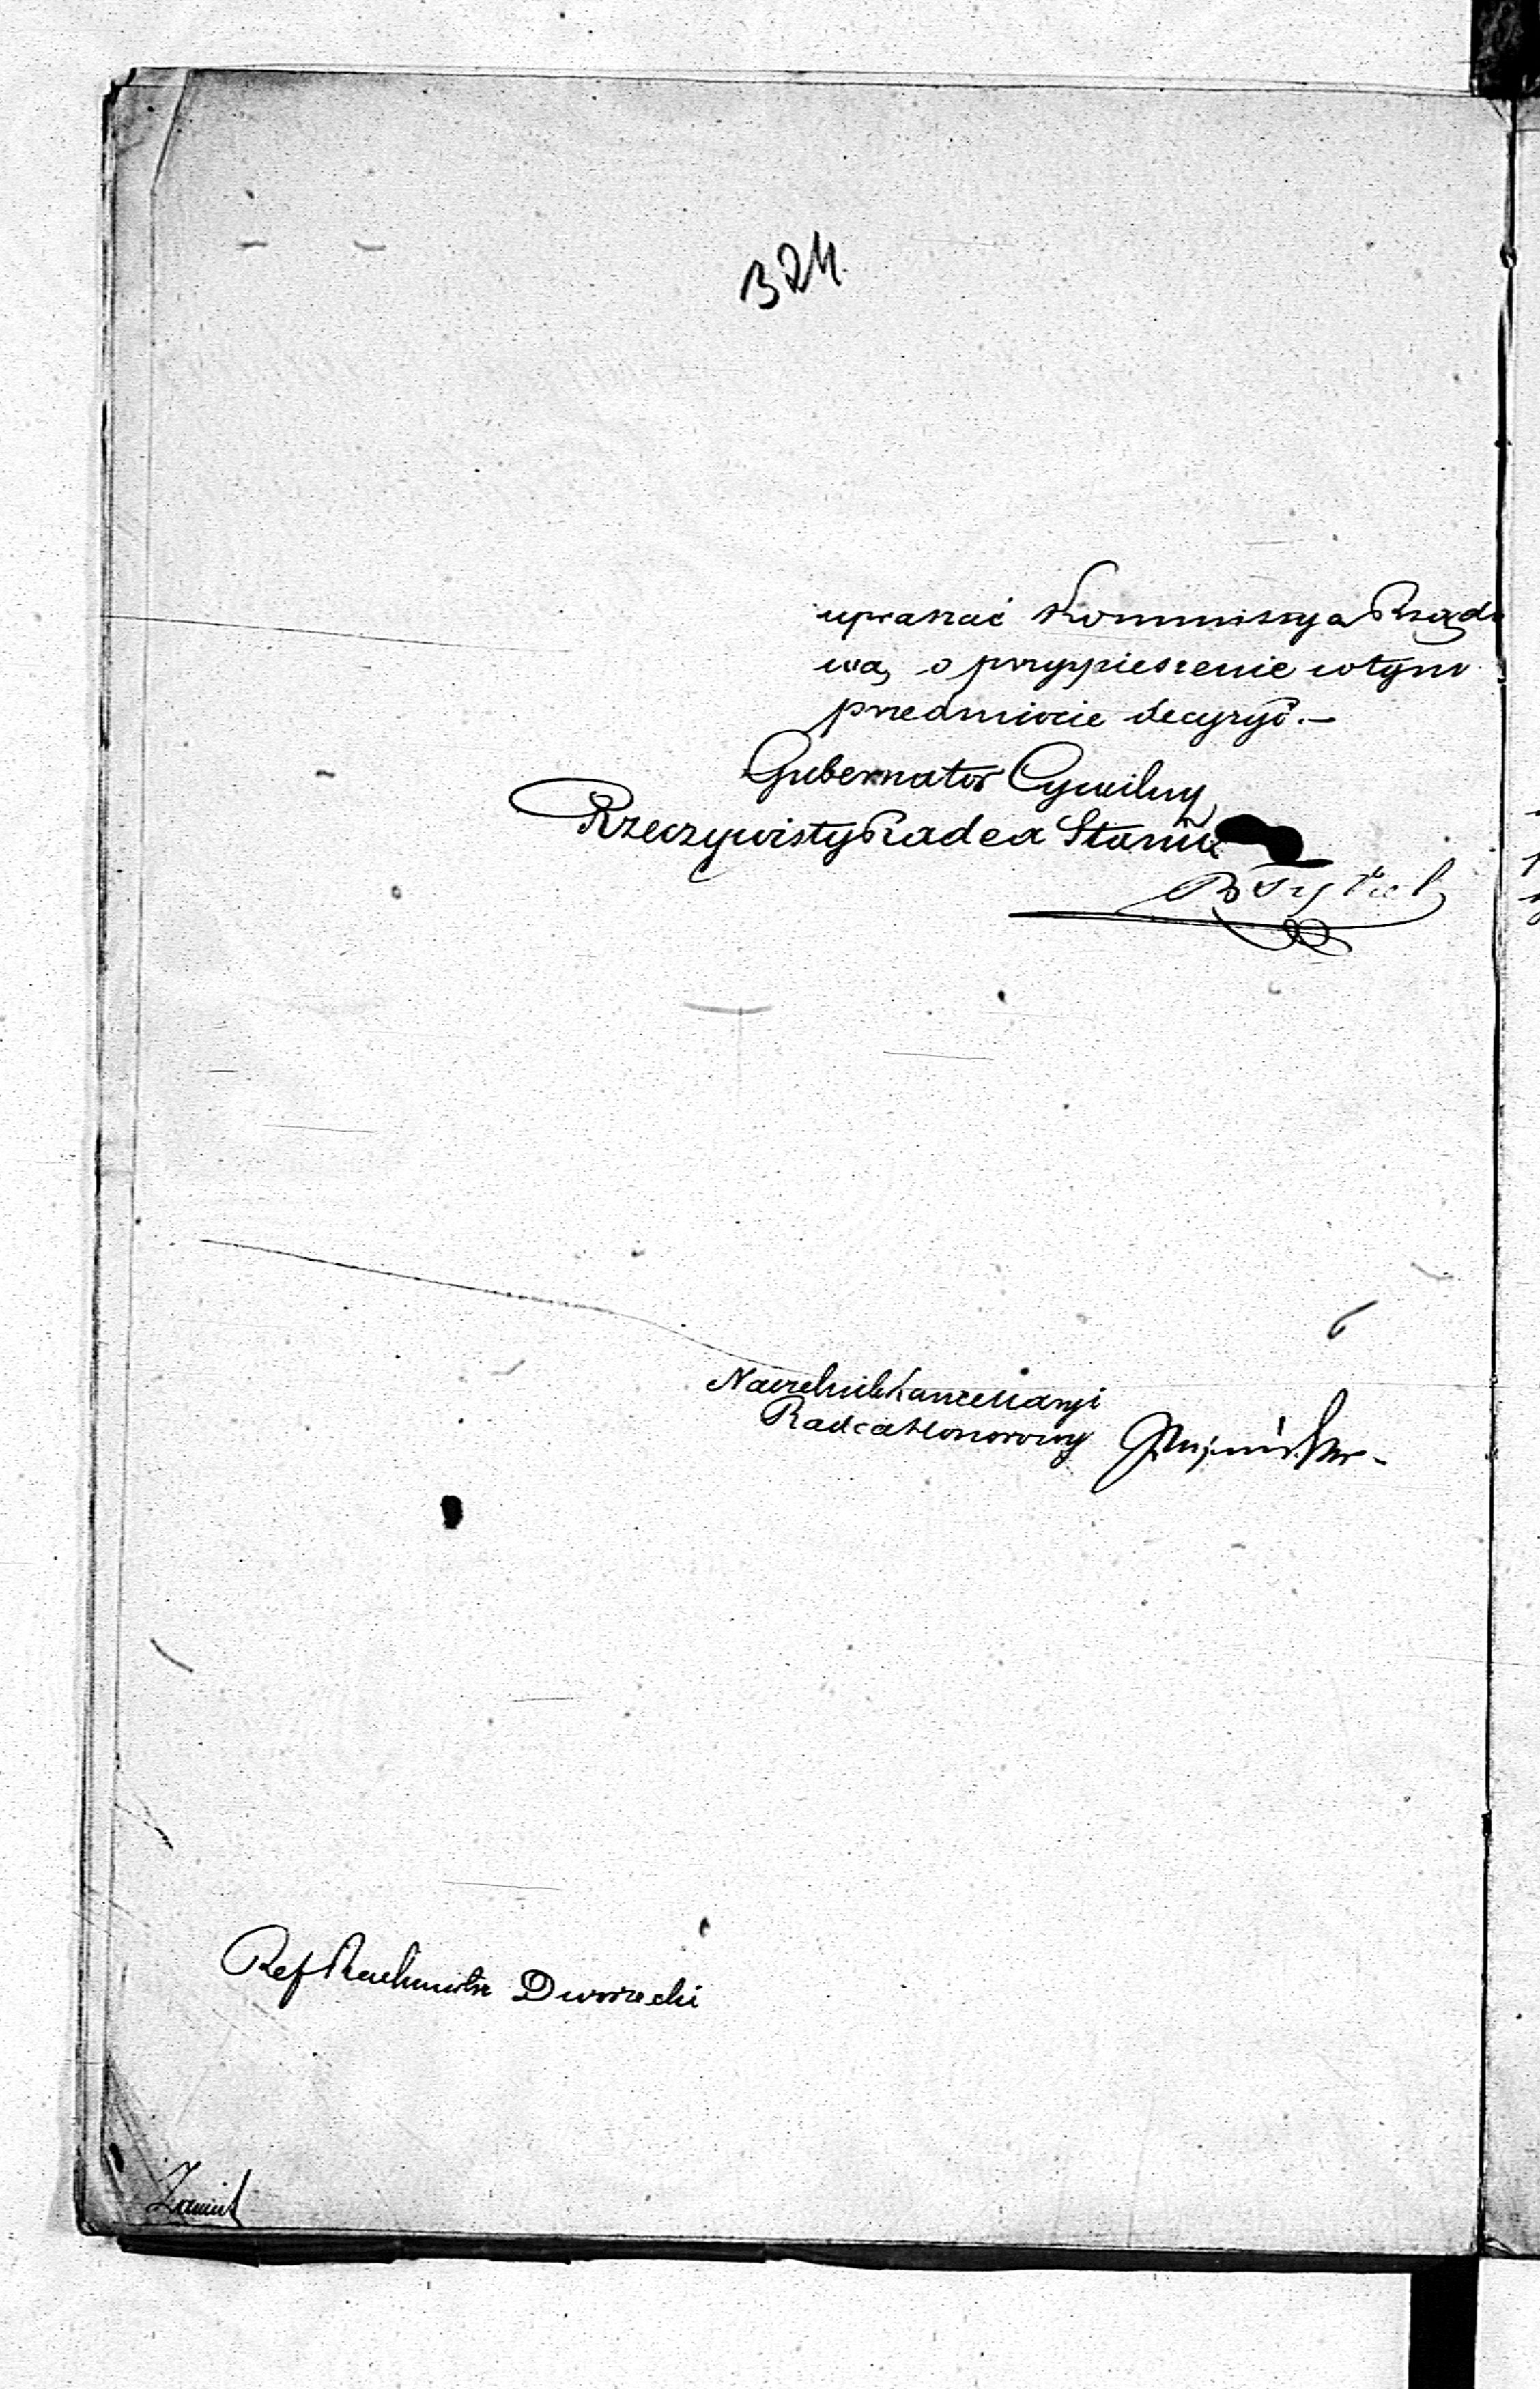 324.
upraszać Kommissya Rządo
wą o przyspieszenie w tym
przedmiocie decyzyi. —
Gubernator Cywilny,
Rzeczywisty Radca Stanu
Naczelnik Kancellaryi
Radca Honorowy
Ref Rachmistr Dworzecki